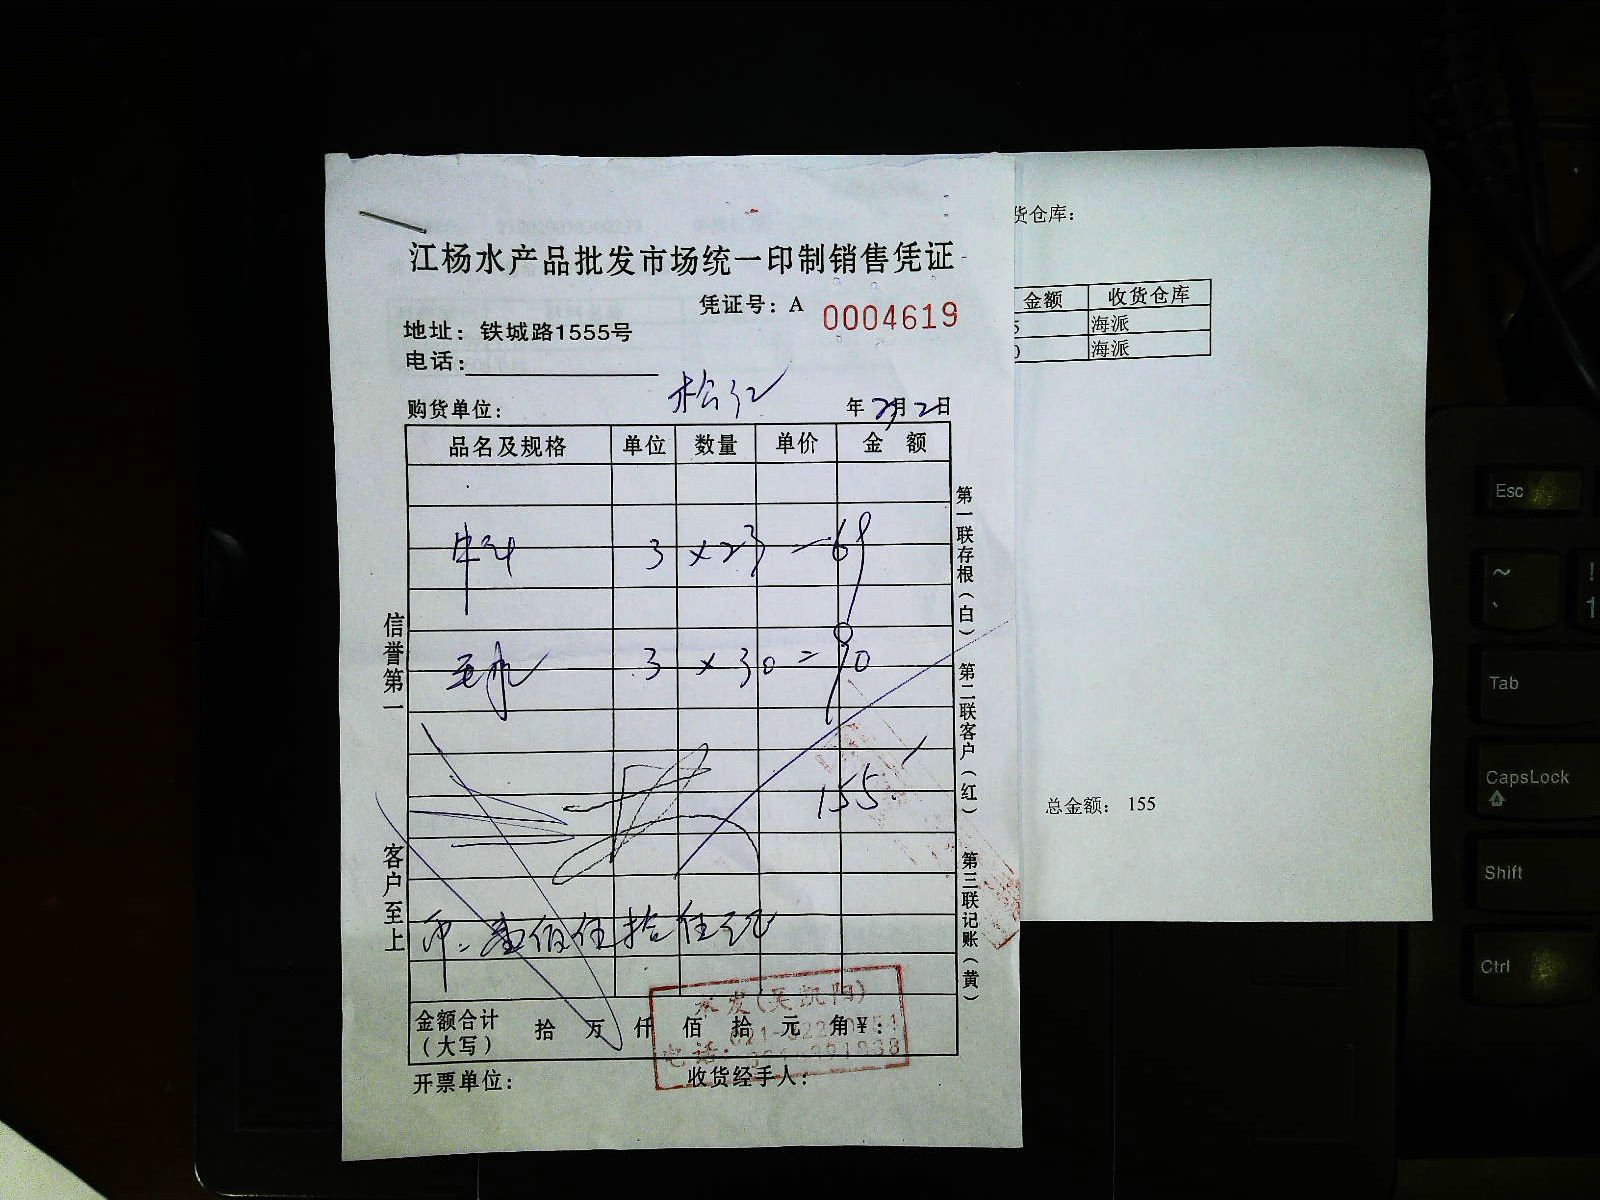 江杨水产品批发市场统一印制销售凭证
凭证号：A 0004619
地址：铁城路1555号
电话：
购货单位： 年 2月2日
品名及规格 单位 数量 单价 金额
3 ×23 — 69
3 × 30 = 90
155
壹佰伍拾伍元
金额合计（大写） 拾 万 仟 佰 拾 元 角 ¥：
开票单位： 收货经手人：
信誉第一 客户至上
第一联存根（白） 第二联客户（红） 第三联记账（黄）
水发(吴凯阳)
电话：
货仓库：
金额 收货仓库
5 海派
0 海派
总金额： 155
Esc
~
`
!
1
Tab
CapsLock
Shift
Ctrl